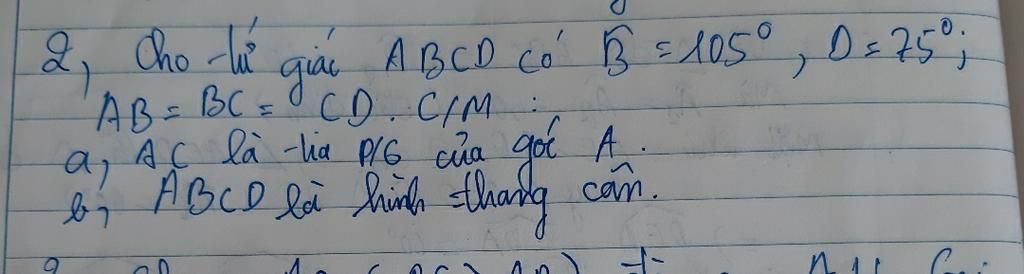 2, Cho tứ giác ABCD có B̂ = 105°, D = 75°;
AB = BC = CD. C/M :
a, AC là tia P/G của góc A.
b, ABCD là hình thang cân.